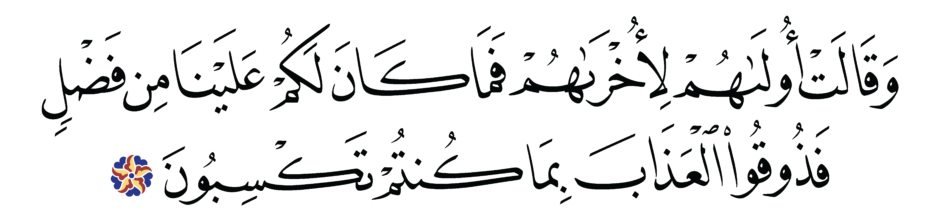 وَقَالَتْ أُولَىٰهُمْ لِأُخْرَىٰهُمْ فَمَا كَانَ لَكُمْ عَلَيْنَا مِن فَضْلٍ
فَذُوقُوا۟ ٱلْعَذَابَ بِمَا كُنتُمْ تَكْسِبُونَ